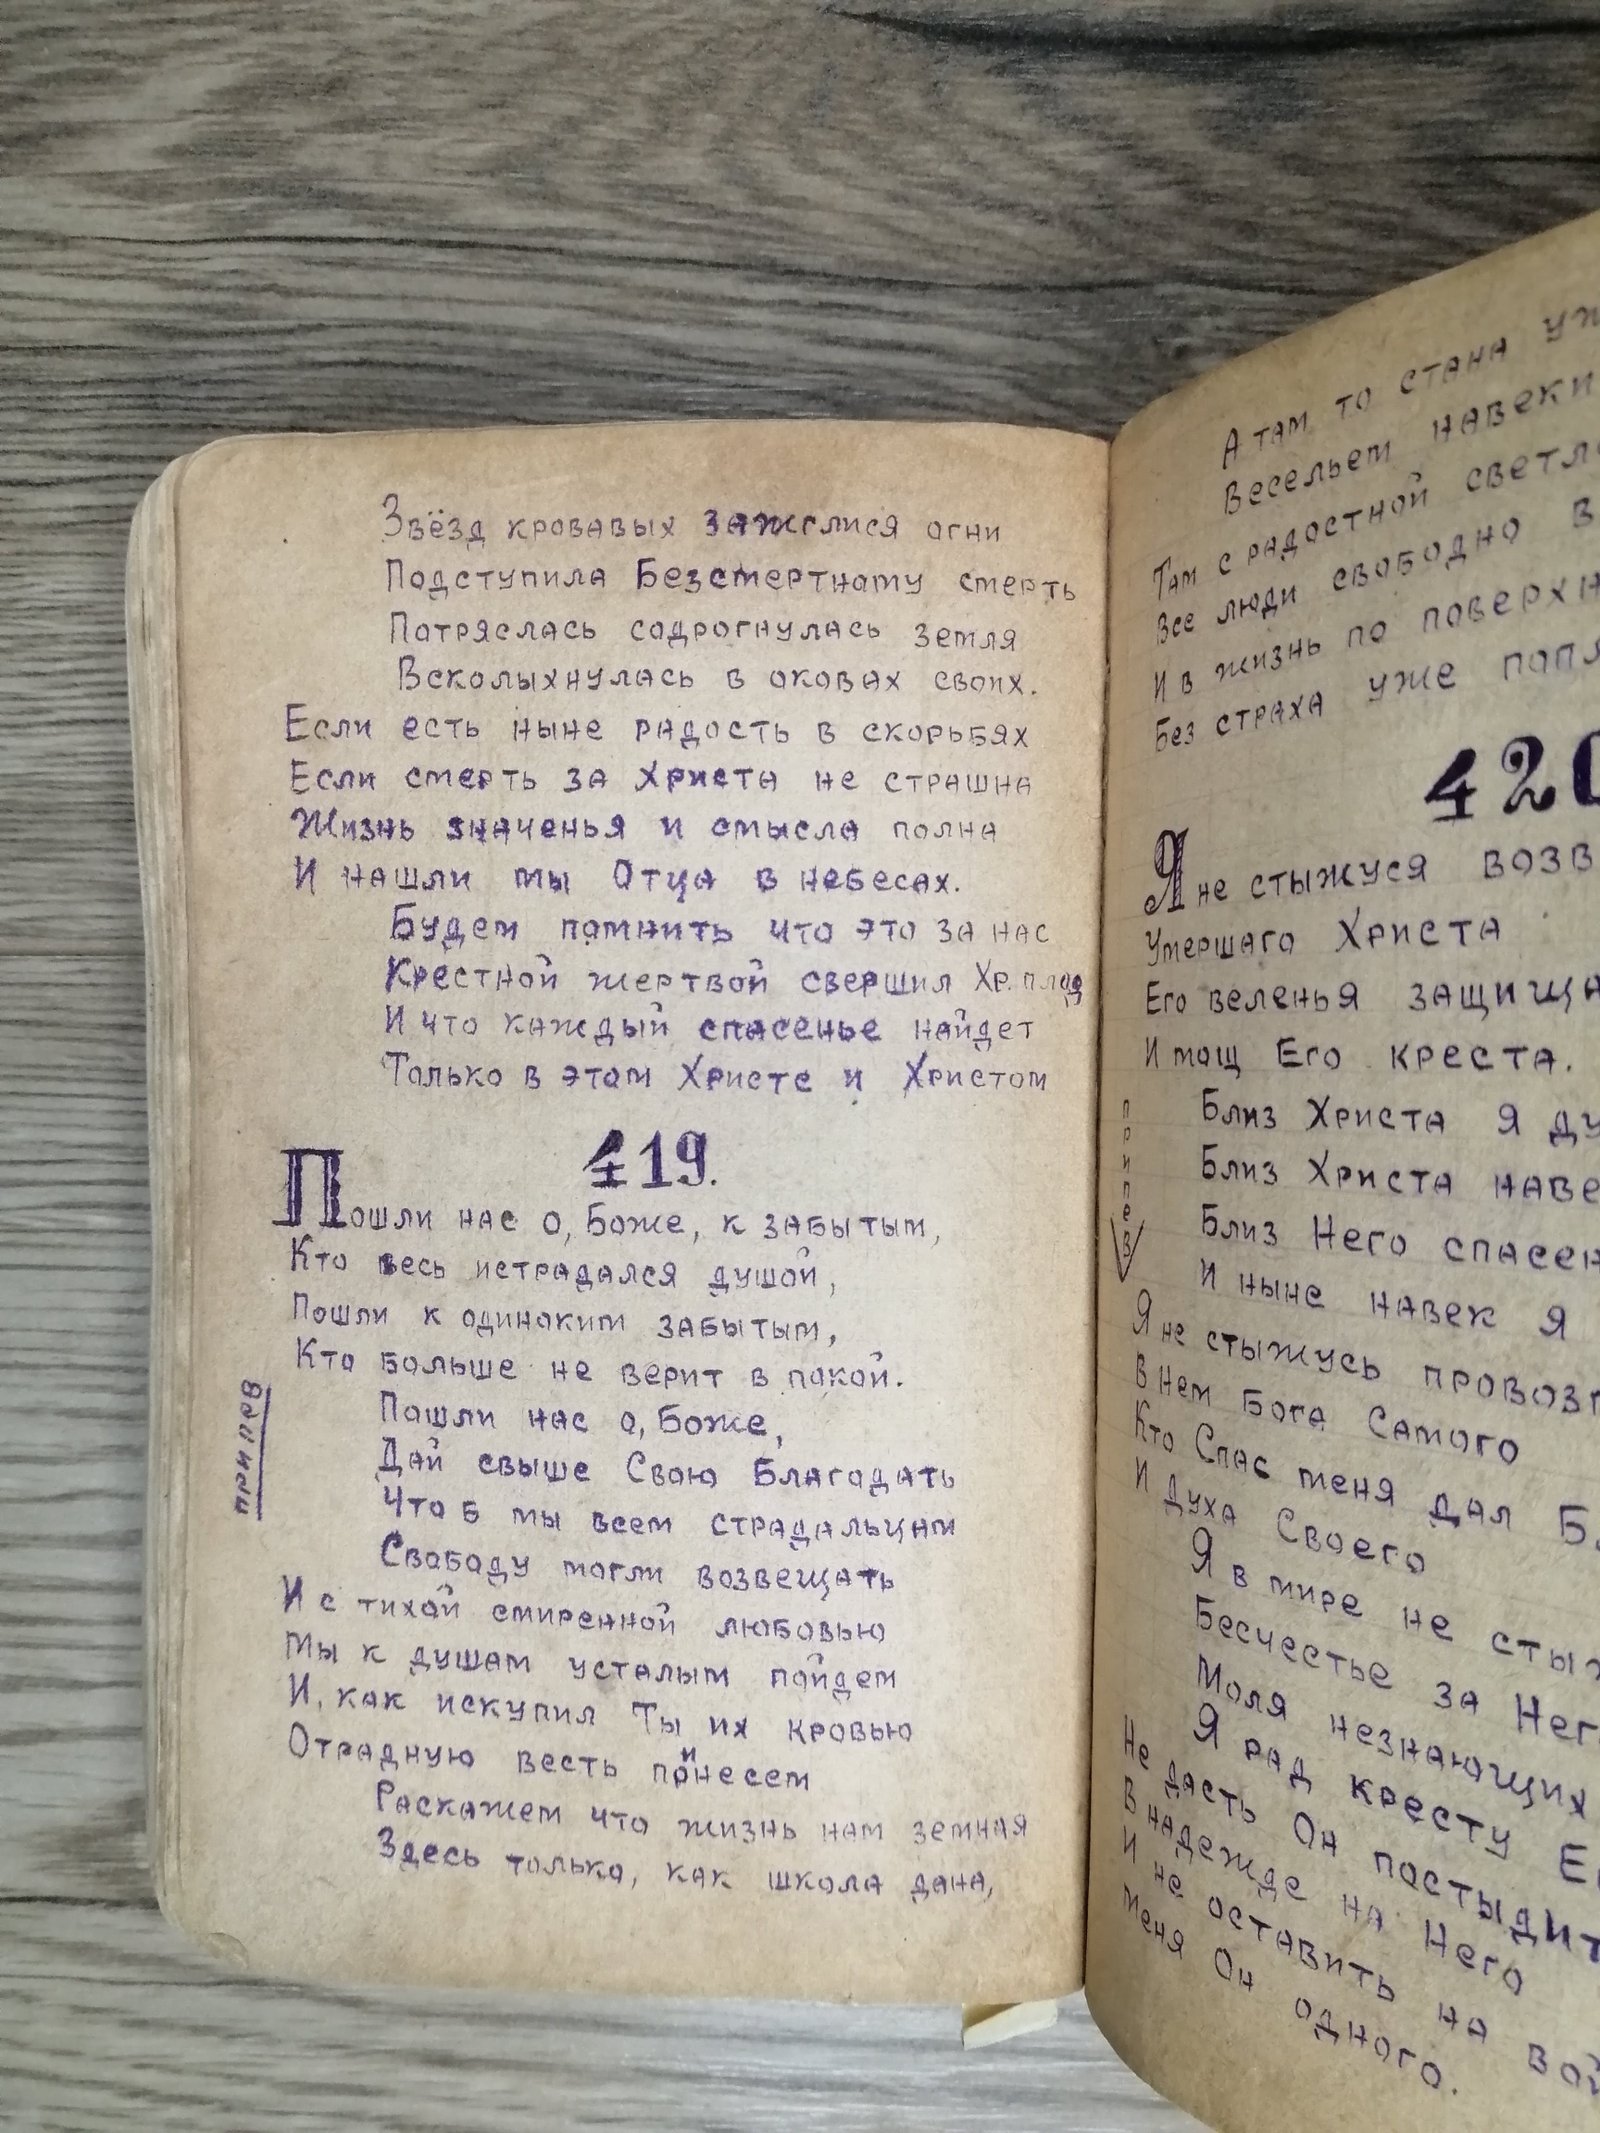 Звёзд кровавых зажглися огни
Подступила Безсмертному смерть
Потряслась содрогнулась земля
Всколыхнулась в оковах своих.
Если есть ныне радость в скорьбях
Если смерть за Христа не страшна
Жизнь значенья и смысла полна
И нашли мы Отца в небесах.
Будем помнить что это за нас
Крестной жертвой свершил Хр. плод
И что каждый спасенье найдет
Только в этом Христе и Христом
419.
Пошли нас о, Боже, к забытым,
Кто весь истрадался душой,
Пошли к одиноким забытым,
Кто больше не верит в покой.
Пошли нас о, Боже,
Дай свыше Свою Благодать
Что б мы всем страдальцам
Свободу могли возвещать
И с тихой смиренной любовью
Мы к душам усталым пойдем
И, как искупил Ты их кровью
Отрадную весть принесем
Раскажем что жизнь нам земная
Здесь только, как школа дана,
А там то стана уж
Весельем навеки
Там с радостной светл
Все люди свободно в
И в жизнь по поверхн
Без страха уже попл
420
Я не стыжуся возв
Умершаго Христа
Его веленья защища
И мощ Его креста.
припев
Близ Христа я ду
Близ Христа наве
Близ Него спасен
И ныне навек я
Я не стыжусь провозг
В нем Бога Самого
Кто Спас меня дал Б
И Духа Своего
Я в мире не стыж
Бесчестье за Нег
Моля незнающих
Я рад кресту Е
Не дасть Он постыдит
В надежде на Него
И не оставить на вой
Меня Он одного.